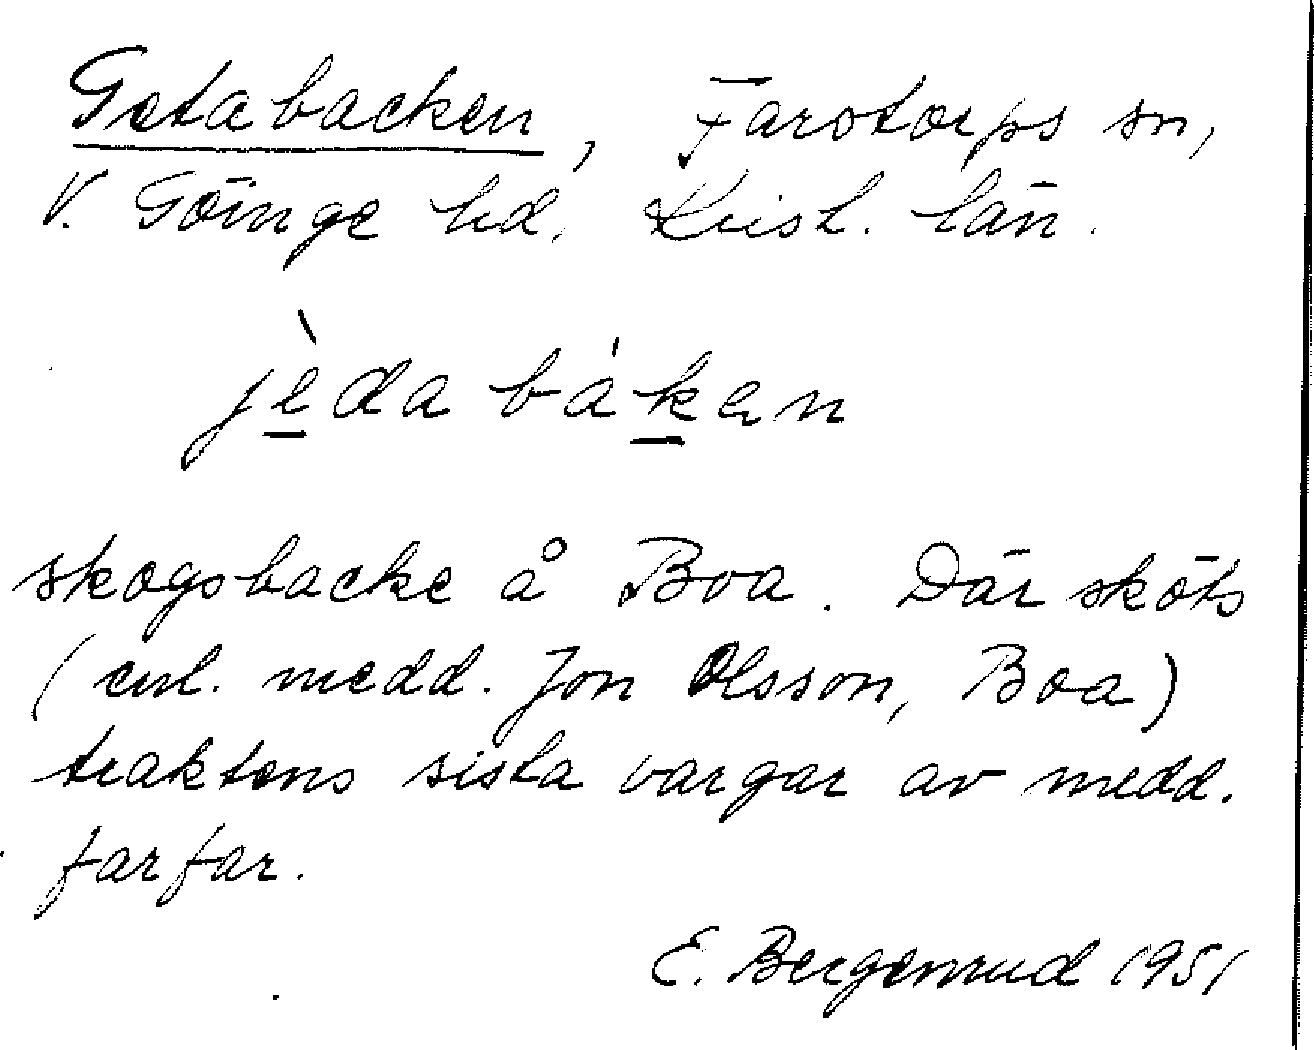 Getabacken, Farstorps sn,
V. Göinge hd. Krist. län.
jèdabákən
skogsbacke å Boa. Där sköts
(enl. medd. Jon Olsson, Boa)
traktens sista vargar av medd.
farfar.
E. Bergenrud 1951